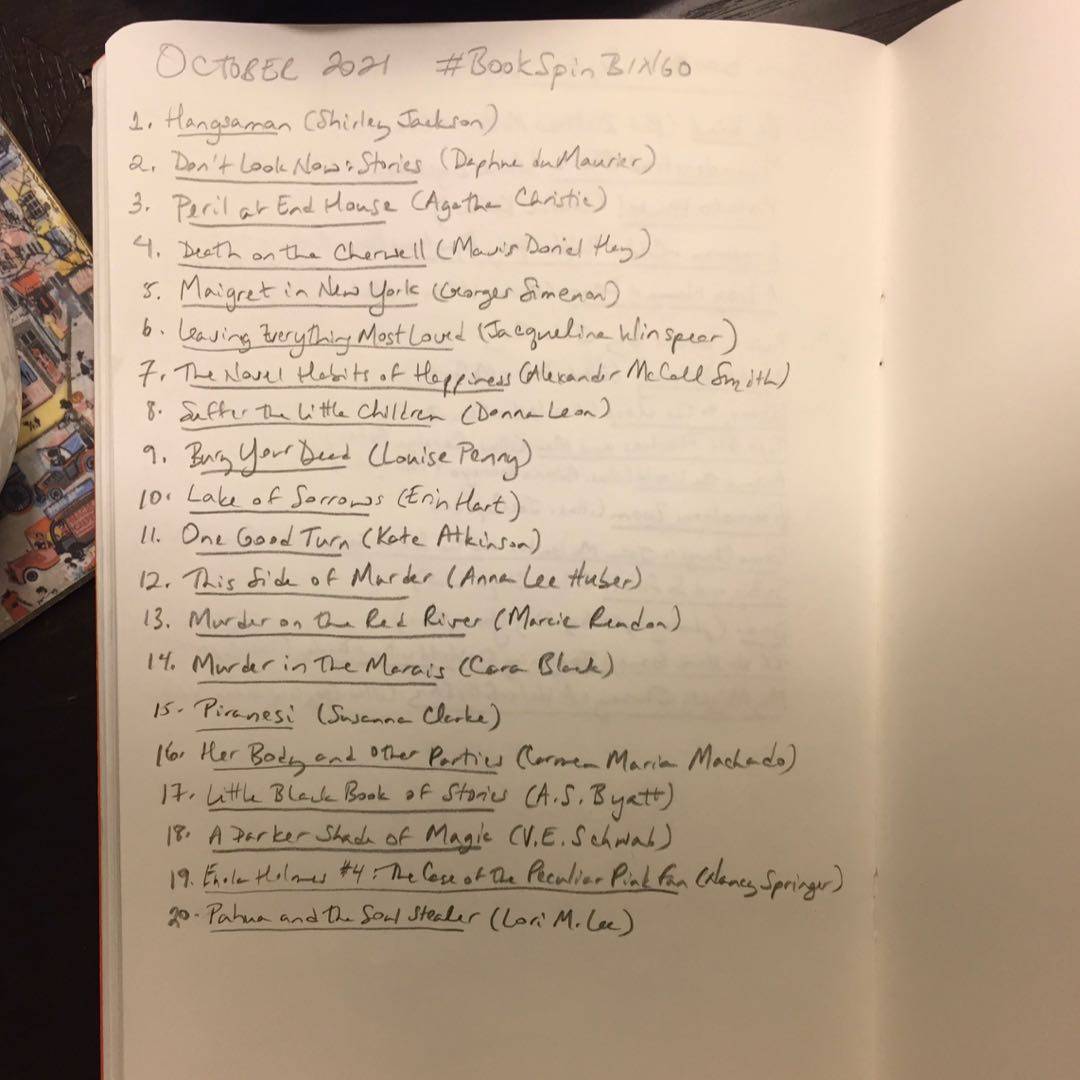 OCTOBER 2021 #BookSpinBINGO
1. Hangsaman (Shirley Jackson)
2. Don't Look Now: Stories (Daphne du Maurier)
3. Peril at End House (Agatha Christie)
4. Death on the Cherwell (Mavis Doriel Hay)
5. Maigret in New York (Georges Simenon)
6. Leaving Everything Most Loved (Jacqueline Winspear)
7. The Novel Habits of Happiness (Alexander McCall Smith)
8. Suffer the Little Children (Donna Leon)
9. Bury Your Dead (Louise Penny)
10. Lake of Sorrows (Erin Hart)
11. One Good Turn (Kate Atkinson)
12. This Side of Murder (Anna Lee Huber)
13. Murder on the Red River (Marcie Rendon)
14. Murder in the Marais (Cara Black)
15. Piranesi (Susanna Clarke)
16. Her Body and Other Parties (Carmen Maria Machado)
17. Little Black Book of Stories (A.S. Byatt)
18. A Darker Shade of Magic (V.E. Schwab)
19. Enola Holmes #4: The Case of the Peculiar Pink Fan (Nancy Springer)
20. Pahua and the Soul Stealer (Lori M. Lee)